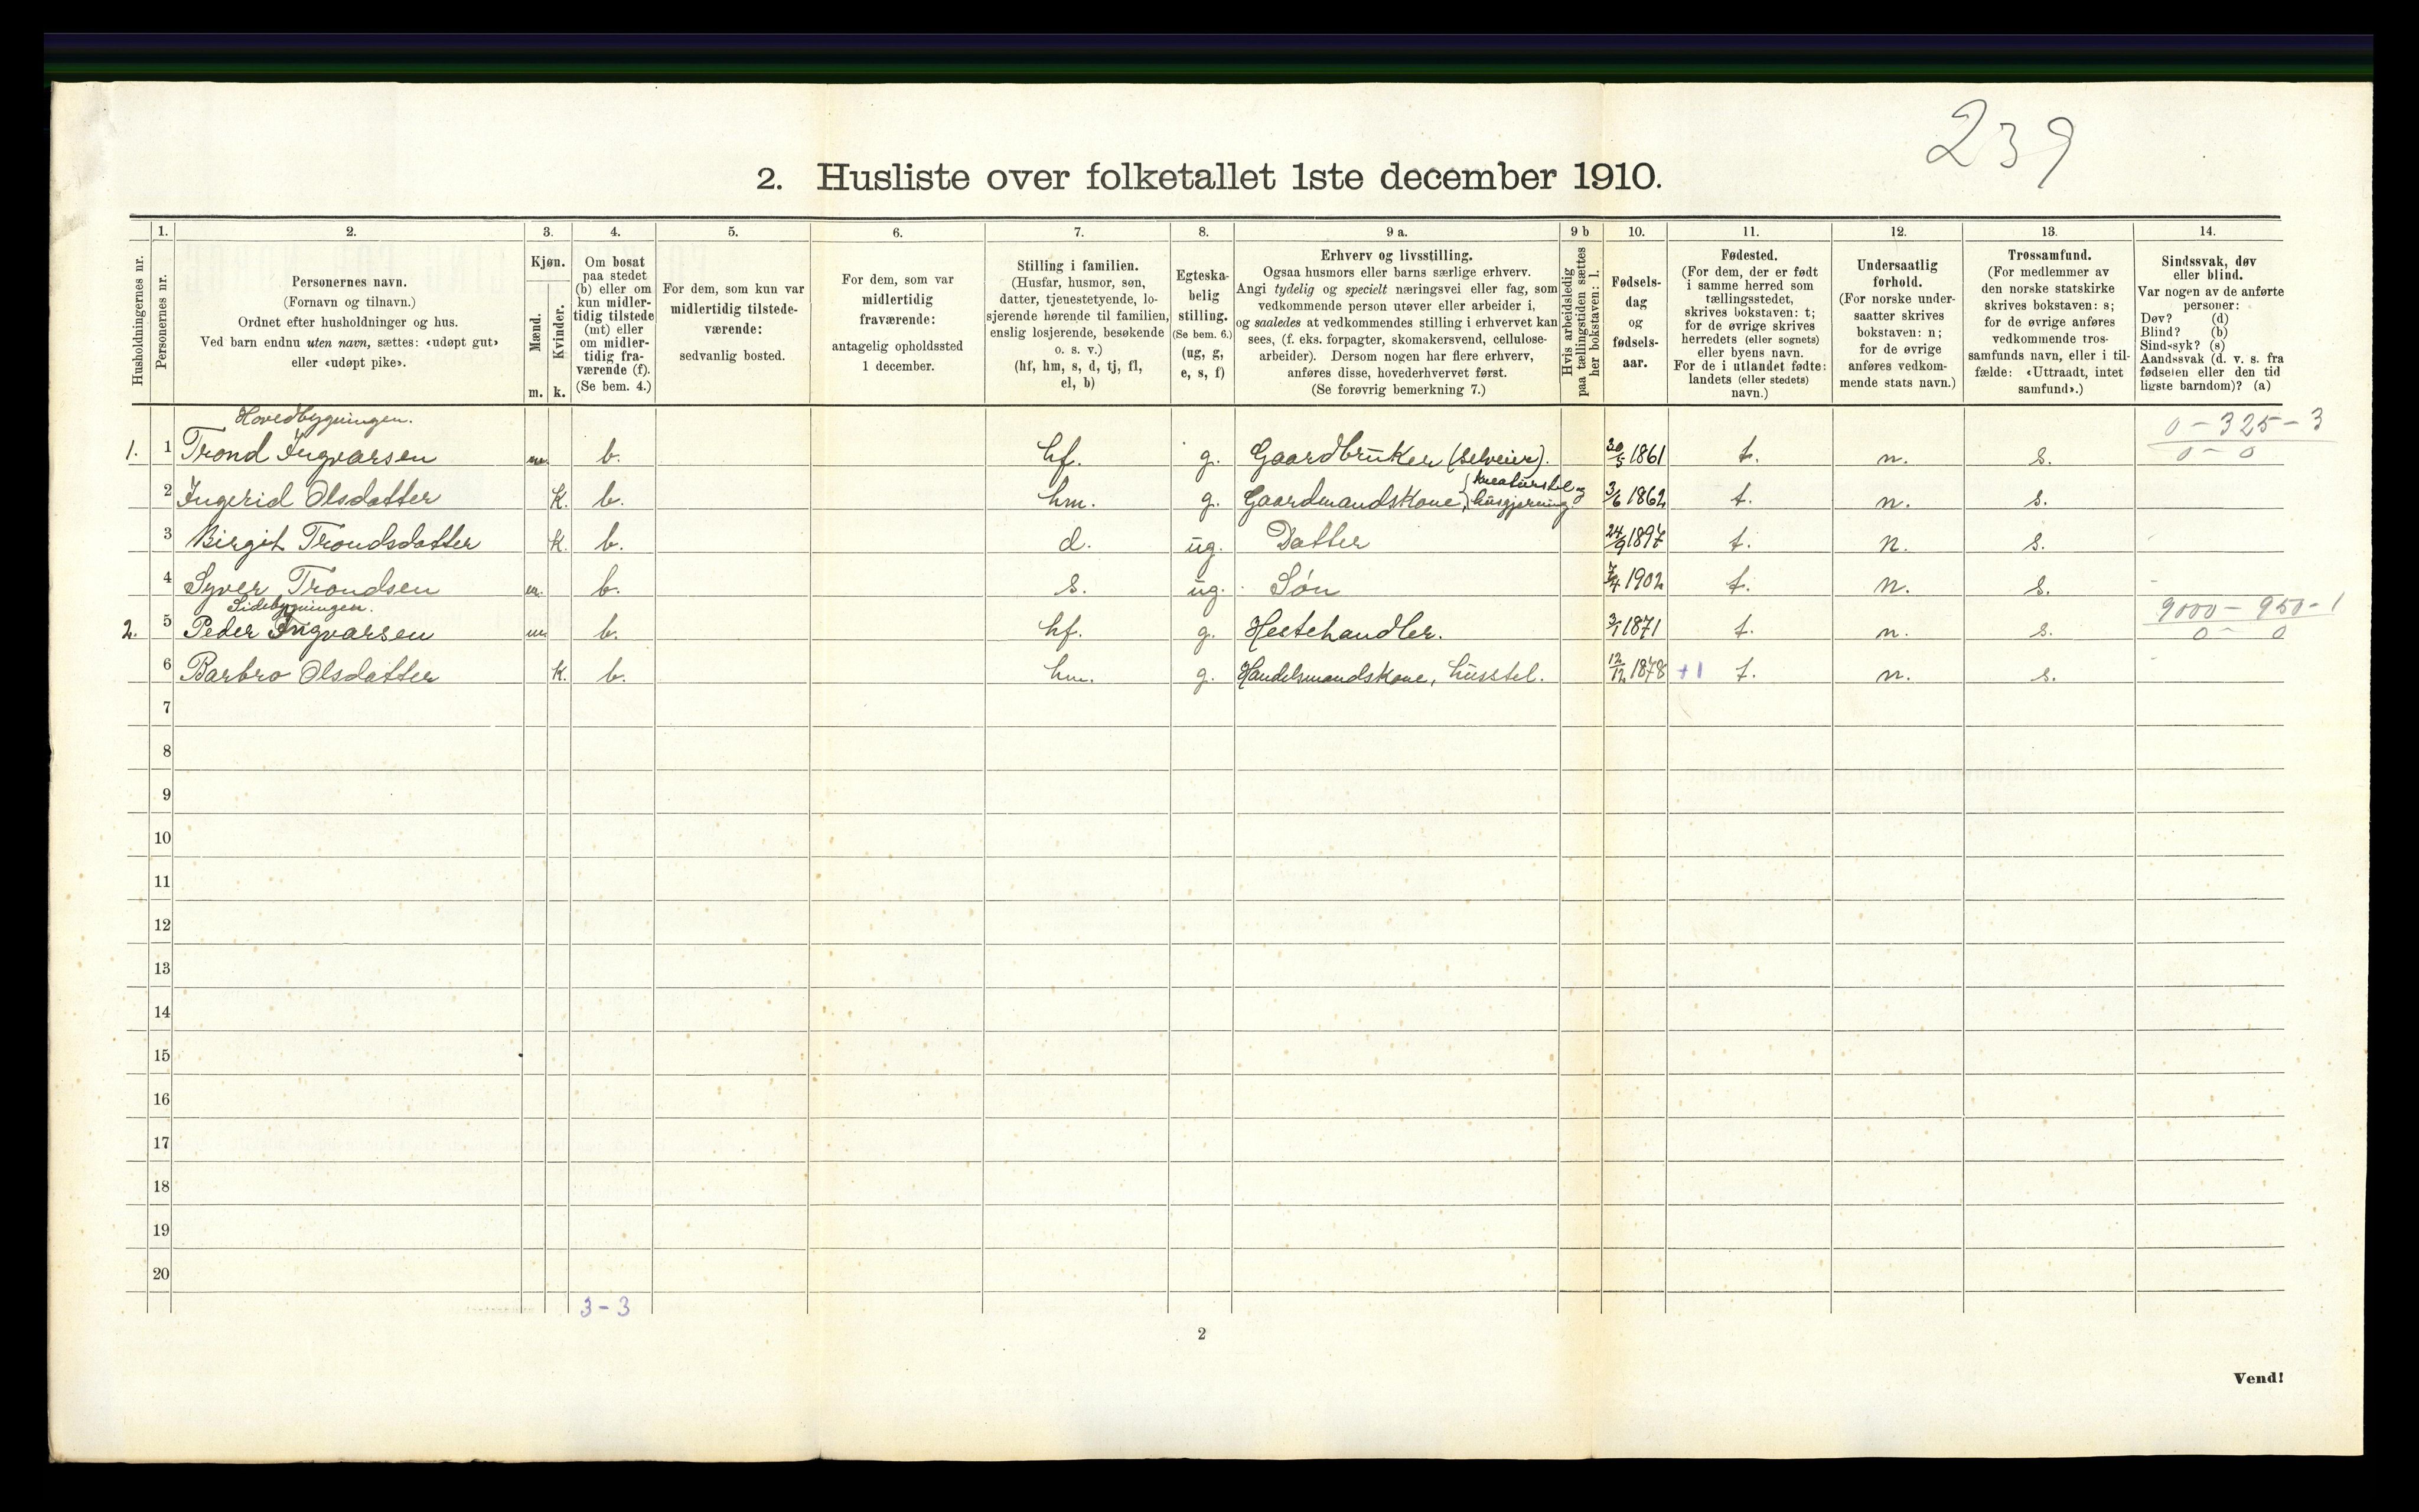 239
2. Husliste over folketallet 1ste december 1910.
1. 2. 3. 4. 5. 6. 7. 8. 9 a. 9 b 10. 11. 12. 13. 14.
Husholdningernes nr.
Personernes nr.
Personernes navn.
(Fornavn og tilnavn.)
Ordnet efter husholdninger og hus.
Ved barn endnu uten navn, sættes: «udøpt gut»
eller «udøpt pike».
Kjøn.
Mænd.
Kvinder.
m. k.
Om bosat
paa stedet
(b) eller om
kun midler-
tidig tilstede
(mt) eller
om midler-
tidig fra-
værende (f).
(Se bem. 4.)
For dem, som kun var
midlertidig tilstede-
værende:
sedvanlig bosted.
For dem, som var
midlertidig
fraværende:
antagelig opholdssted
1 december.
Stilling i familien.
(Husfar, husmor, søn,
datter, tjenestetyende, lo-
sjerende hørende til familien,
enslig losjerende, besøkende
o. s. v.)
(hf, hm, s, d, tj, fl,
el, b)
Egteska-
belig
stilling.
(Se bem. 6.)
(ug, g,
e, s, f)
Erhverv og livsstilling.
Ogsaa husmors eller barns særlige erhverv.
Angi tydelig og specielt næringsvei eller fag, som
vedkommende person utøver eller arbeider i,
og saaledes at vedkommendes stilling i erhvervet kan
sees, (f. eks. forpagter, skomakersvend, cellulose-
arbeider). Dersom nogen har flere erhverv,
anføres disse, hovederhvervet først.
(Se forøvrig bemerkning 7.)
Hvis arbeidsledig
paa tællingstiden sættes
her bokstaven: l.
Fødsels-
dag
og
fødsels-
aar.
Fødested.
(For dem, der er født
i samme herred som
tællingsstedet,
skrives bokstaven: t;
for de øvrige skrives
herredets (eller sognets)
eller byens navn.
For de i utlandet fødte:
landets (eller stedets)
navn.)
Undersaatlig
forhold.
(For norske under-
saatter skrives
bokstaven: n;
for de øvrige
anføres vedkom-
mende stats navn.)
Trossamfund.
(For medlemmer av
den norske statskirke
skrives bokstaven: s;
for de øvrige anføres
vedkommende tros-
samfunds navn, eller i til-
fælde: «Uttraadt, intet
samfund».)
Sindssvak, døv
eller blind.
Var nogen av de anførte
personer:
Døv? (d)
Blind? (b)
Sindssyk? (s)
Aandssvak (d. v. s. fra
fødselen eller den tid
ligste barndom)? (a)
Hovedbygningen. 0 - 325 - 3
1. 1 Trond Ingvarsen m. b. hf. g. Gaardbruker (selveier). 30/5 1861 t. n. s. 0 - 0
2 Ingerid Olsdatter K. b. hm. g. Gaardmandskone, { kreaturstel og husgjerning. 3/6 1862 t. n. s.
3 Birgit Trondsdatter K. b. d. ug. Datter 24/9 1897 t. n. s. -
4 Syver Trondsen m. b. s. ug. Søn 7/4 1902 t. n. s. -
Sidebygningen. 9000 - 950 - 1
2. 5 Peder Ingvarsen m b. hf. g. Hestehandler. 3/1 1871 t. n. s. 0 - 0
6 Barbro Olsdatter K. b. hm. g. Handelsmandskone, husstel. 12/12 1878 +1 t. n. s. -
7
8
9
10
11
12
13
14
15
16
17
18
19
20
3 - 3
2
Vend!